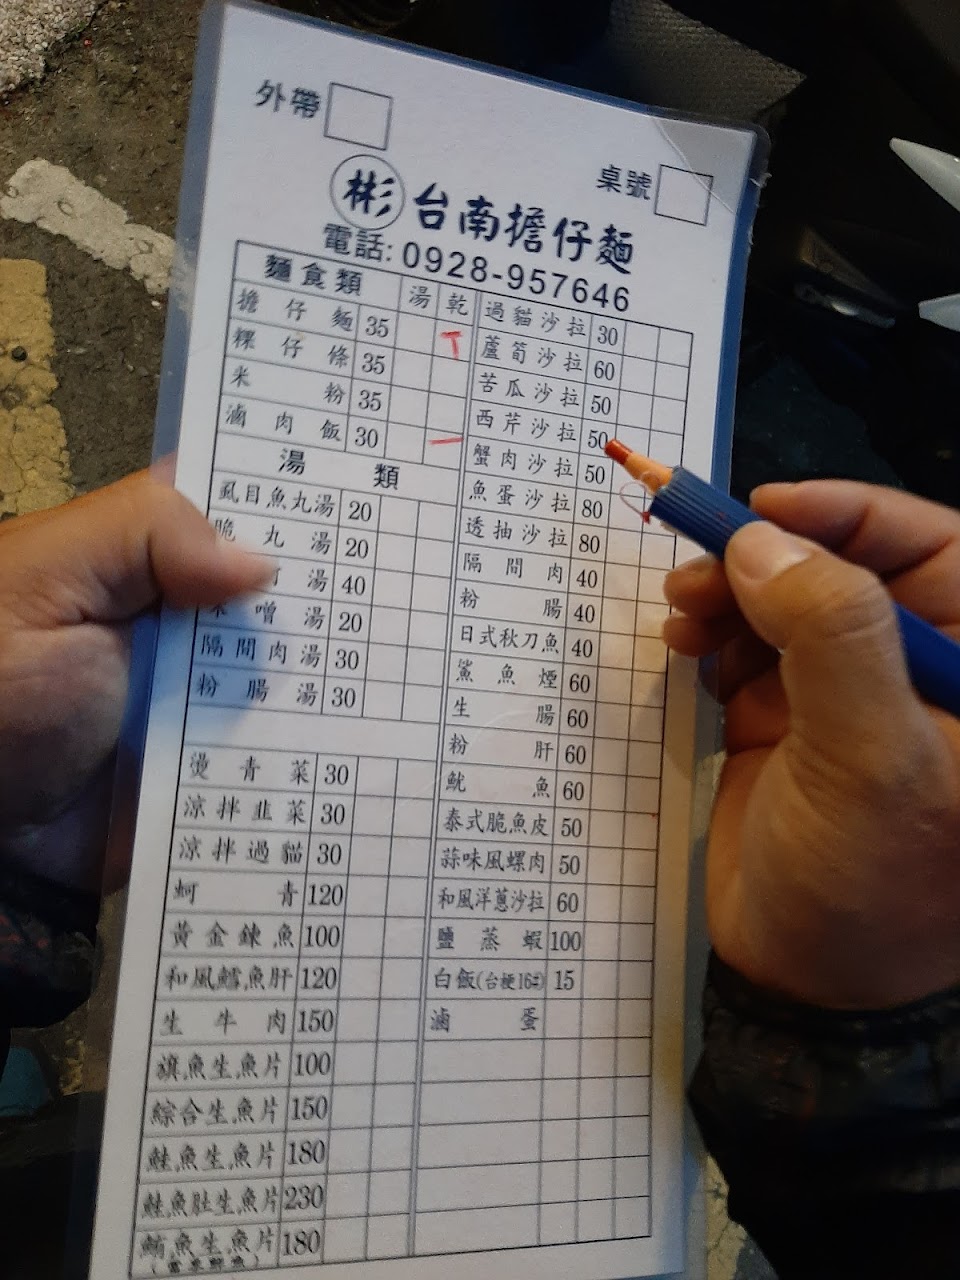 外帶
桌號
彬 台南擔仔麵
電話: 0928-957646
麵食類 湯 乾
擔仔麵 35 T
粿仔條 35
米粉 35
滷肉飯 30 一
湯類
虱目魚丸湯 20
脆丸湯 20
湯 40
味噌湯 20
隔間肉湯 30
粉腸湯 30
燙青菜 30
涼拌韭菜 30
涼拌過貓 30
蚵青 120
黃金鍊魚 100
和風鱈魚肝 120
生牛肉 150
旗魚生魚片 100
綜合生魚片 150
鮭魚生魚片 180
鮭魚肚生魚片 230
鮪魚生魚片 180
過貓沙拉 30
蘆筍沙拉 60
苦瓜沙拉 50
西芹沙拉 50
蟹肉沙拉 50
魚蛋沙拉 80
透抽沙拉 80
隔間肉 40
粉腸 40
日式秋刀魚 40
鯊魚煙 60
生腸 60
粉肝 60
魷魚 60
泰式脆魚皮 50
蒜味風螺肉 50
和風洋蔥沙拉 60
鹽蒸蝦 100
白飯(台梗16#) 15
滷蛋